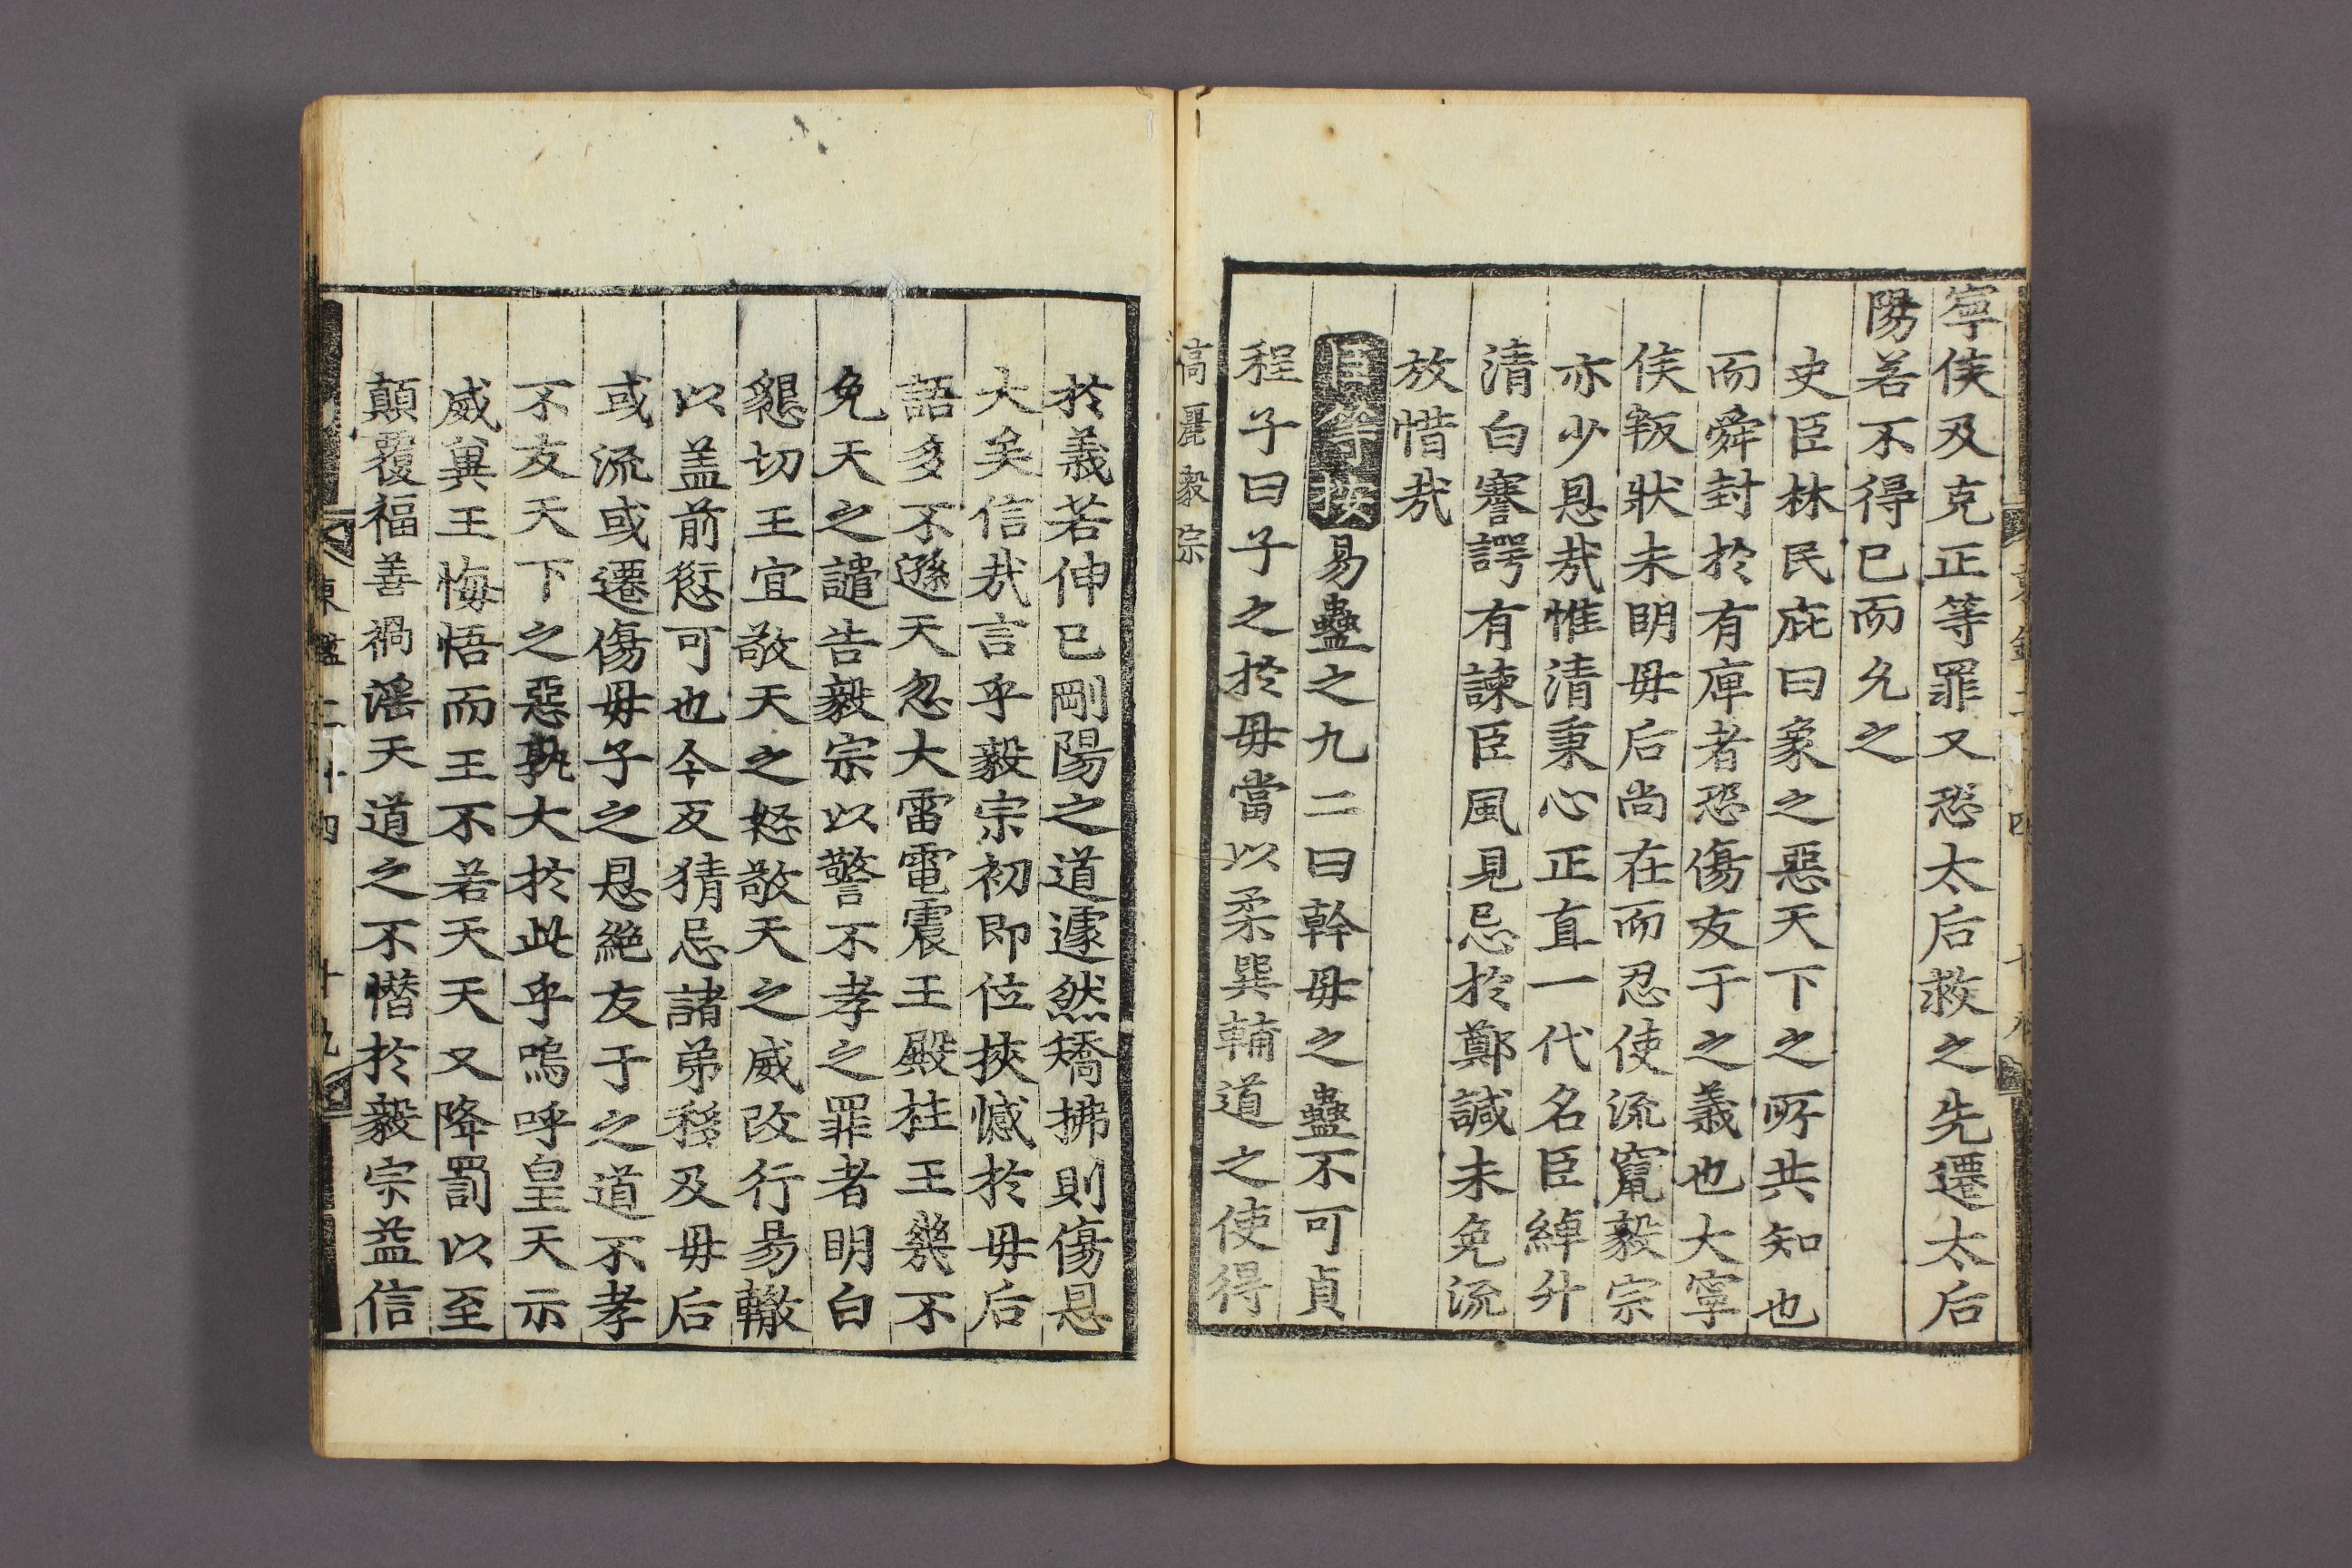 寧侯及克正等罪又恐太后救之先遷太后
陽若不得已而允之
史臣林民庇曰象之惡天下之所共知也
而舜封於有庳者恐傷友于之義也大寧
侯叛狀未明毋后尚在而忍使流竄毅宗
亦少恩㢤惟清秉心正直一代名臣綽爲
清白謇諤有諫臣風見忌於鄭諴未免流
放惜㢤
臣等按易蠱之九二曰幹毋之蠱不可貞
程子曰子之於毋當以柔巽輔道之使得
高麗毅宗
於義若伸已剛陽之道遽然矯拂則傷恩
大矣信㢤言乎毅宗初即位挾憾於毋后
語多不遜天忽大雷電震王殿柱王幾不
免天之譴告毅宗以警不孝之罪者明白
懇切王宜敬天之怒敬天之威改行易轍
以盖前愆可也今反猜忌諸弟移及毋后
或流或遷傷毋子之恩絶友于之道不孝
不友天下之惡孰大於此乎嗚呼皇天示
威兾王悔悟而王不若天天又降罰以至
顚覆福善禍滛天道之不僭於毅宗益信
東鑑二十四 十九